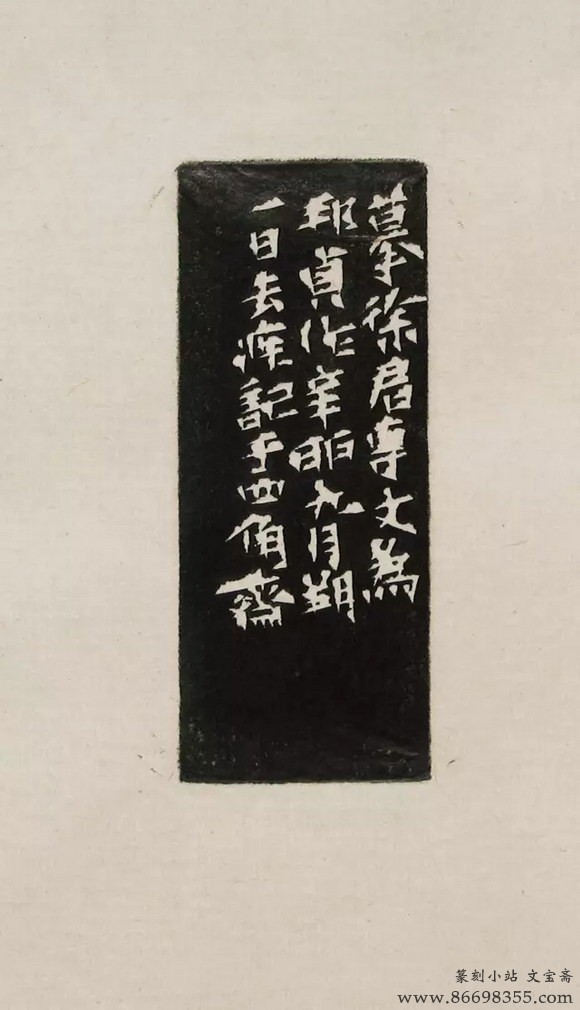 摹徐君專文為
邱貞作辛酉九月朔
一日去疾記于四角齋
篆刻小站 文宝斋
www.86698355.com